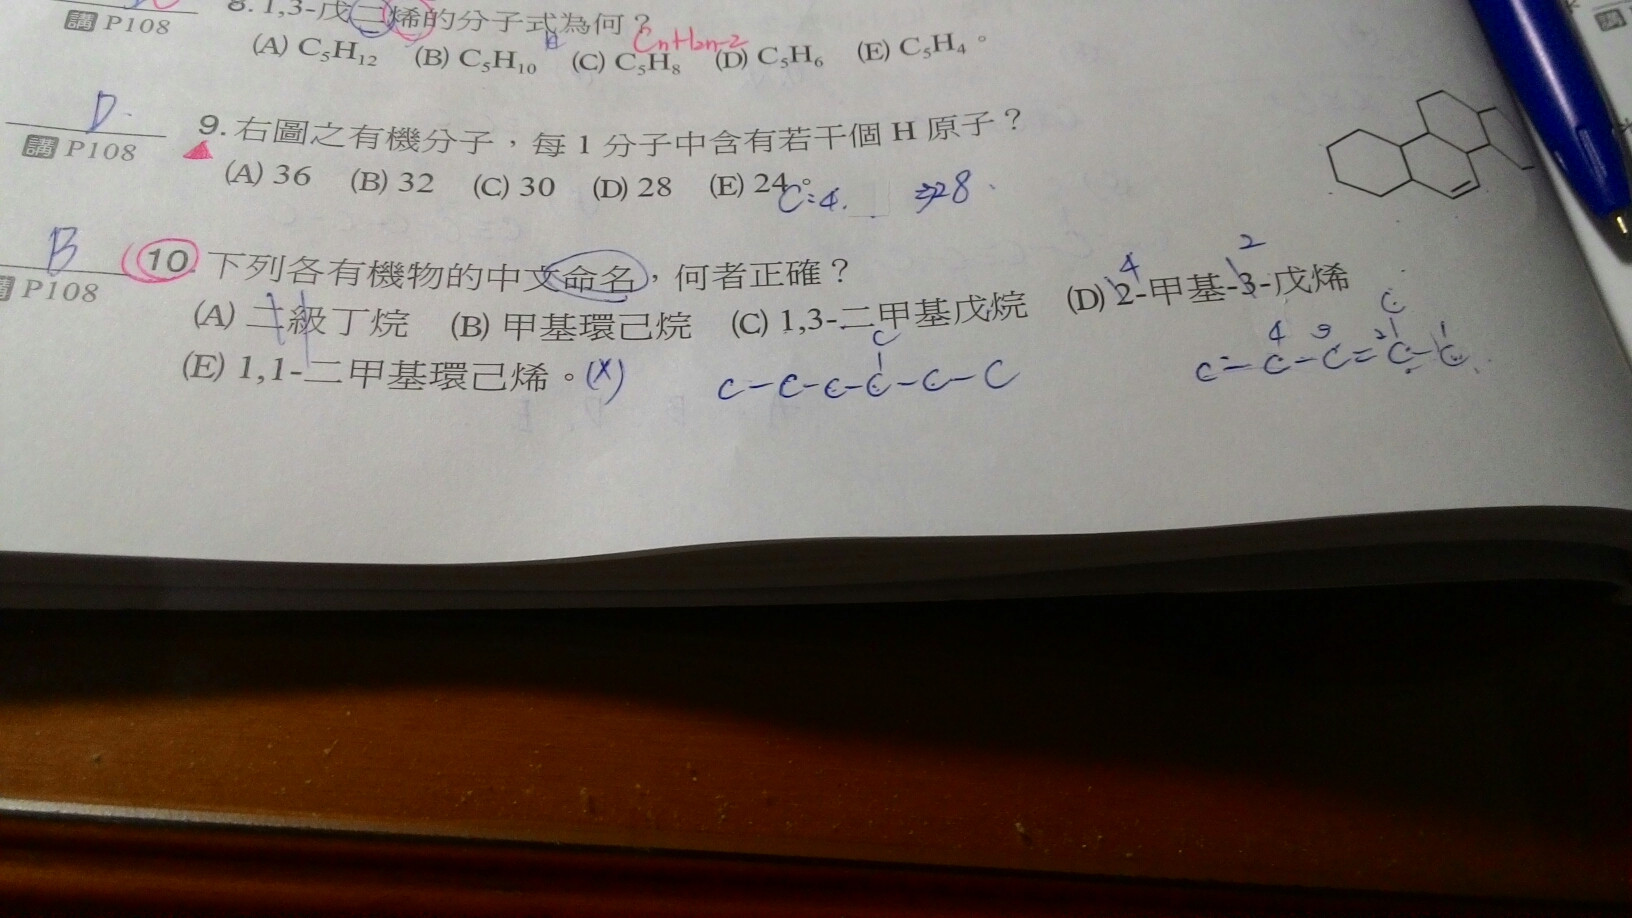 8. 1,3-戊二烯的分子式為何？
講 P108
(A) C₅H₁₂ (B) C₅H₁₀ (C) C₅H₈ (D) C₅H₆ (E) C₅H₄。
CnH2n-2
D.
講 P108
9. 右圖之有機分子，每 1 分子中含有若干個 H 原子？
(A) 36 (B) 32 (C) 30 (D) 28 (E) 24。
C=4. ⇒28.
B
P108
10. 下列各有機物的中文命名，何者正確？
(A) 二級丁烷 (B) 甲基環己烷 (C) 1,3-二甲基戊烷 (D) 2-甲基-3-戊烯
4 2
(E) 1,1-二甲基環己烯。(X)
C
C-C-C-C-C-C
C
4 3 2 1
C-C-C=C-C